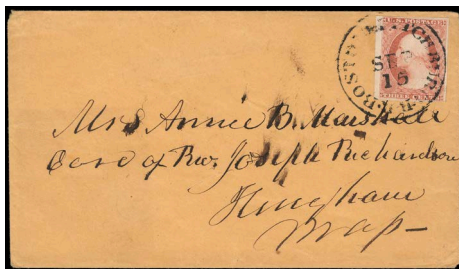 BOSTON & FITCHBURG R.R.
SEP
15
U.S. POSTAGE
Mrs Annie B. Marshall
Care of Rev. Joseph Richardson
Hingham
Mass